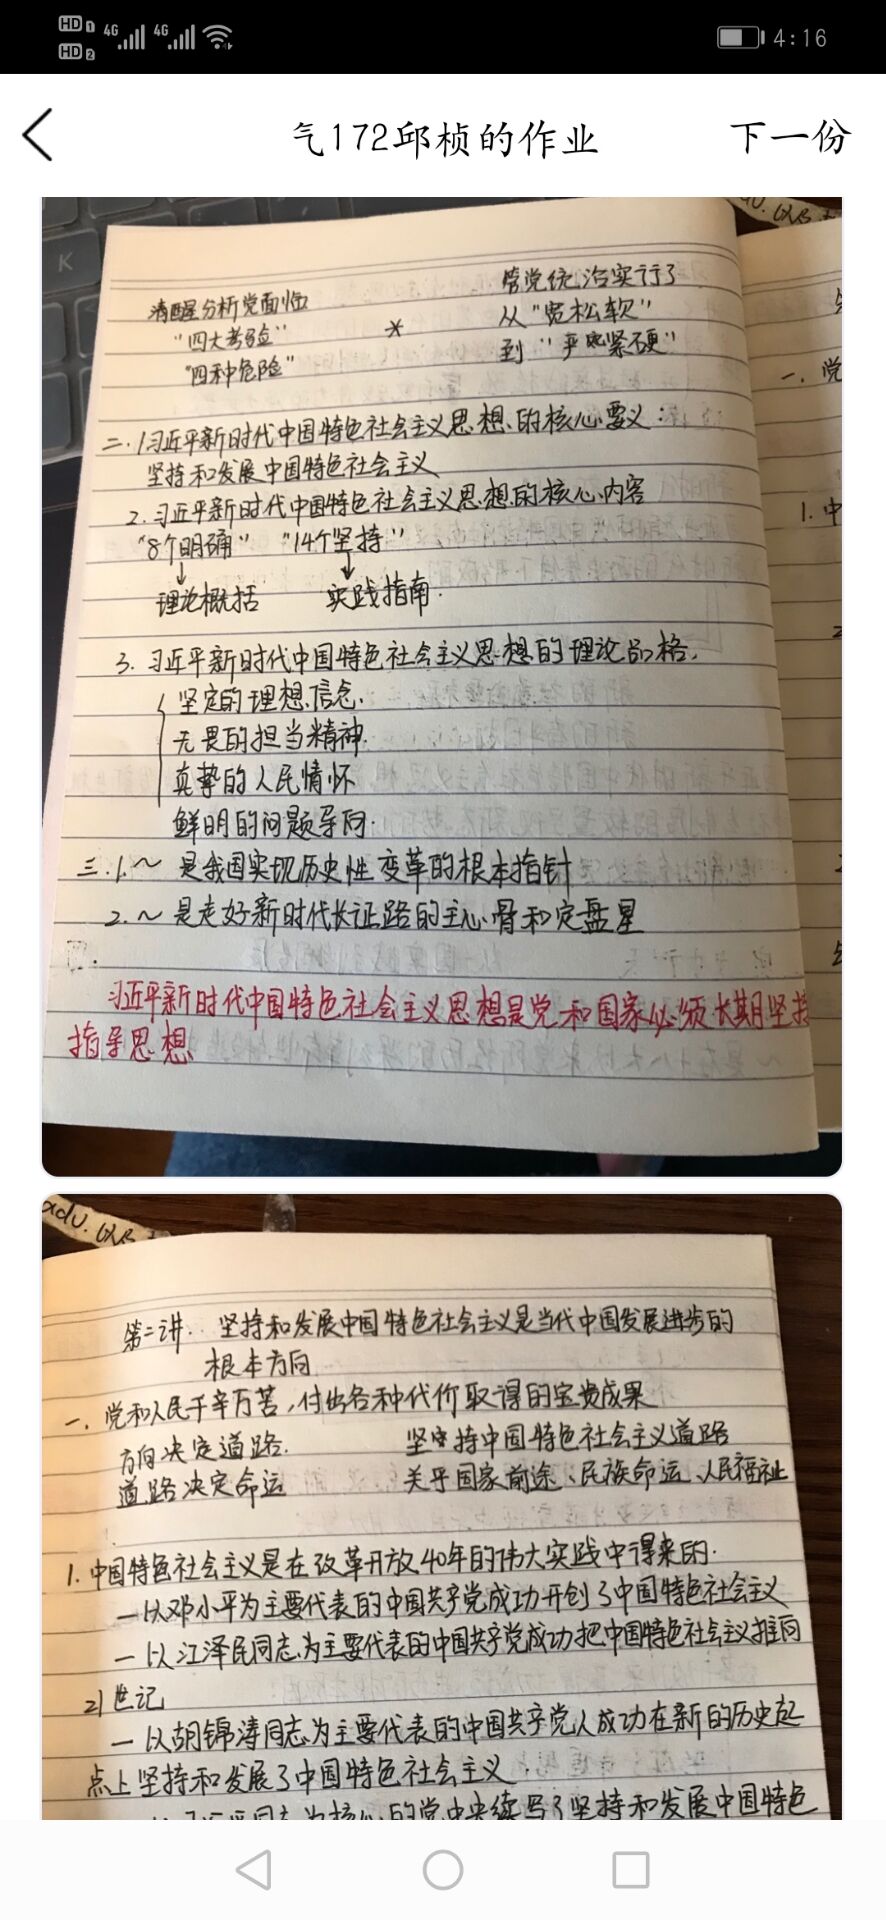 HD 1 4G 4G
HD 2
4:16
气172邱桢的作业
下一份
K
adv.
清醒分析党面临
"四大考验"
"四种危险"
*
管党统治实行了
从"宽松软"
到"严紧硬"
一、党
1.中
二.1习近平新时代中国特色社会主义思想的核心要义:
坚持和发展中国特色社会主义
2.习近平新时代中国特色社会主义思想的核心内容
"8个明确" "14个坚持"
↓ ↓
理论概括 实践指南.
3.习近平新时代中国特色社会主义思想的理论品格.
坚定的理想信念.
无畏的担当精神.
真挚的人民情怀
鲜明的问题导向.
三.1.~是我国实现历史性变革的根本指针
2.~是走好新时代长征路的主心骨和定盘星
习近平新时代中国特色社会主义思想是党和国家必须长期坚持
指导思想
adv.
第二讲.坚持和发展中国特色社会主义是当代中国发展进步的
根本方向
一.党和人民千辛万苦,付出各种代价取得的宝贵成果
方向决定道路.
道路决定命运
坚持中国特色社会主义道路
关乎国家前途、民族命运、人民福祉
1.中国特色社会主义是在改革开放40年的伟大实践中得来的.
一以邓小平为主要代表的中国共产党成功开创了中国特色社会主义
一以江泽民同志为主要代表的中国共产党成功把中国特色社会主义推向
21世记
一以胡锦涛同志为主要代表的中国共产党人成功在新的历史起
点上坚持和发展了中国特色社会主义.
一以习近平同志为核心的党中央续写了坚持和发展中国特色